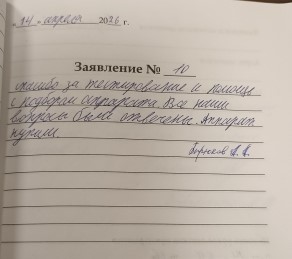 « 14 » апреля 2026 г.
Заявление № 10
спасибо за тестирование и помощь
с подбором аппарата. Все наши
вопросы были отвечены. Аппарат
купили.
А. А.